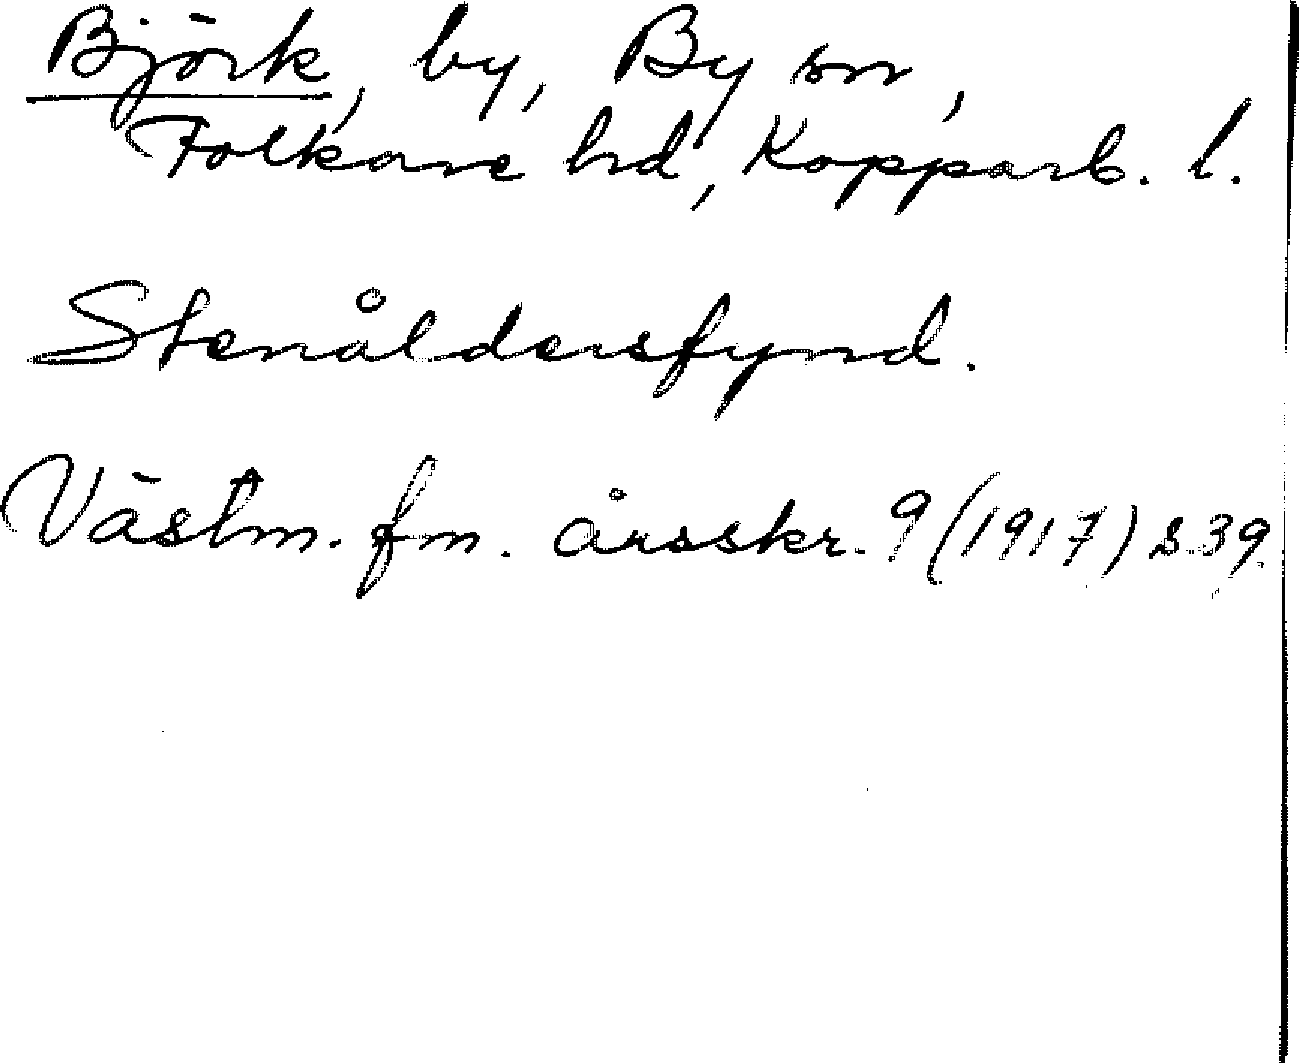 Björk, by, By sn,
Folkare hd, Kopparb. l.
Stenåldersfynd.
Västm. fm. årsskr. 9 (1917) s. 39.